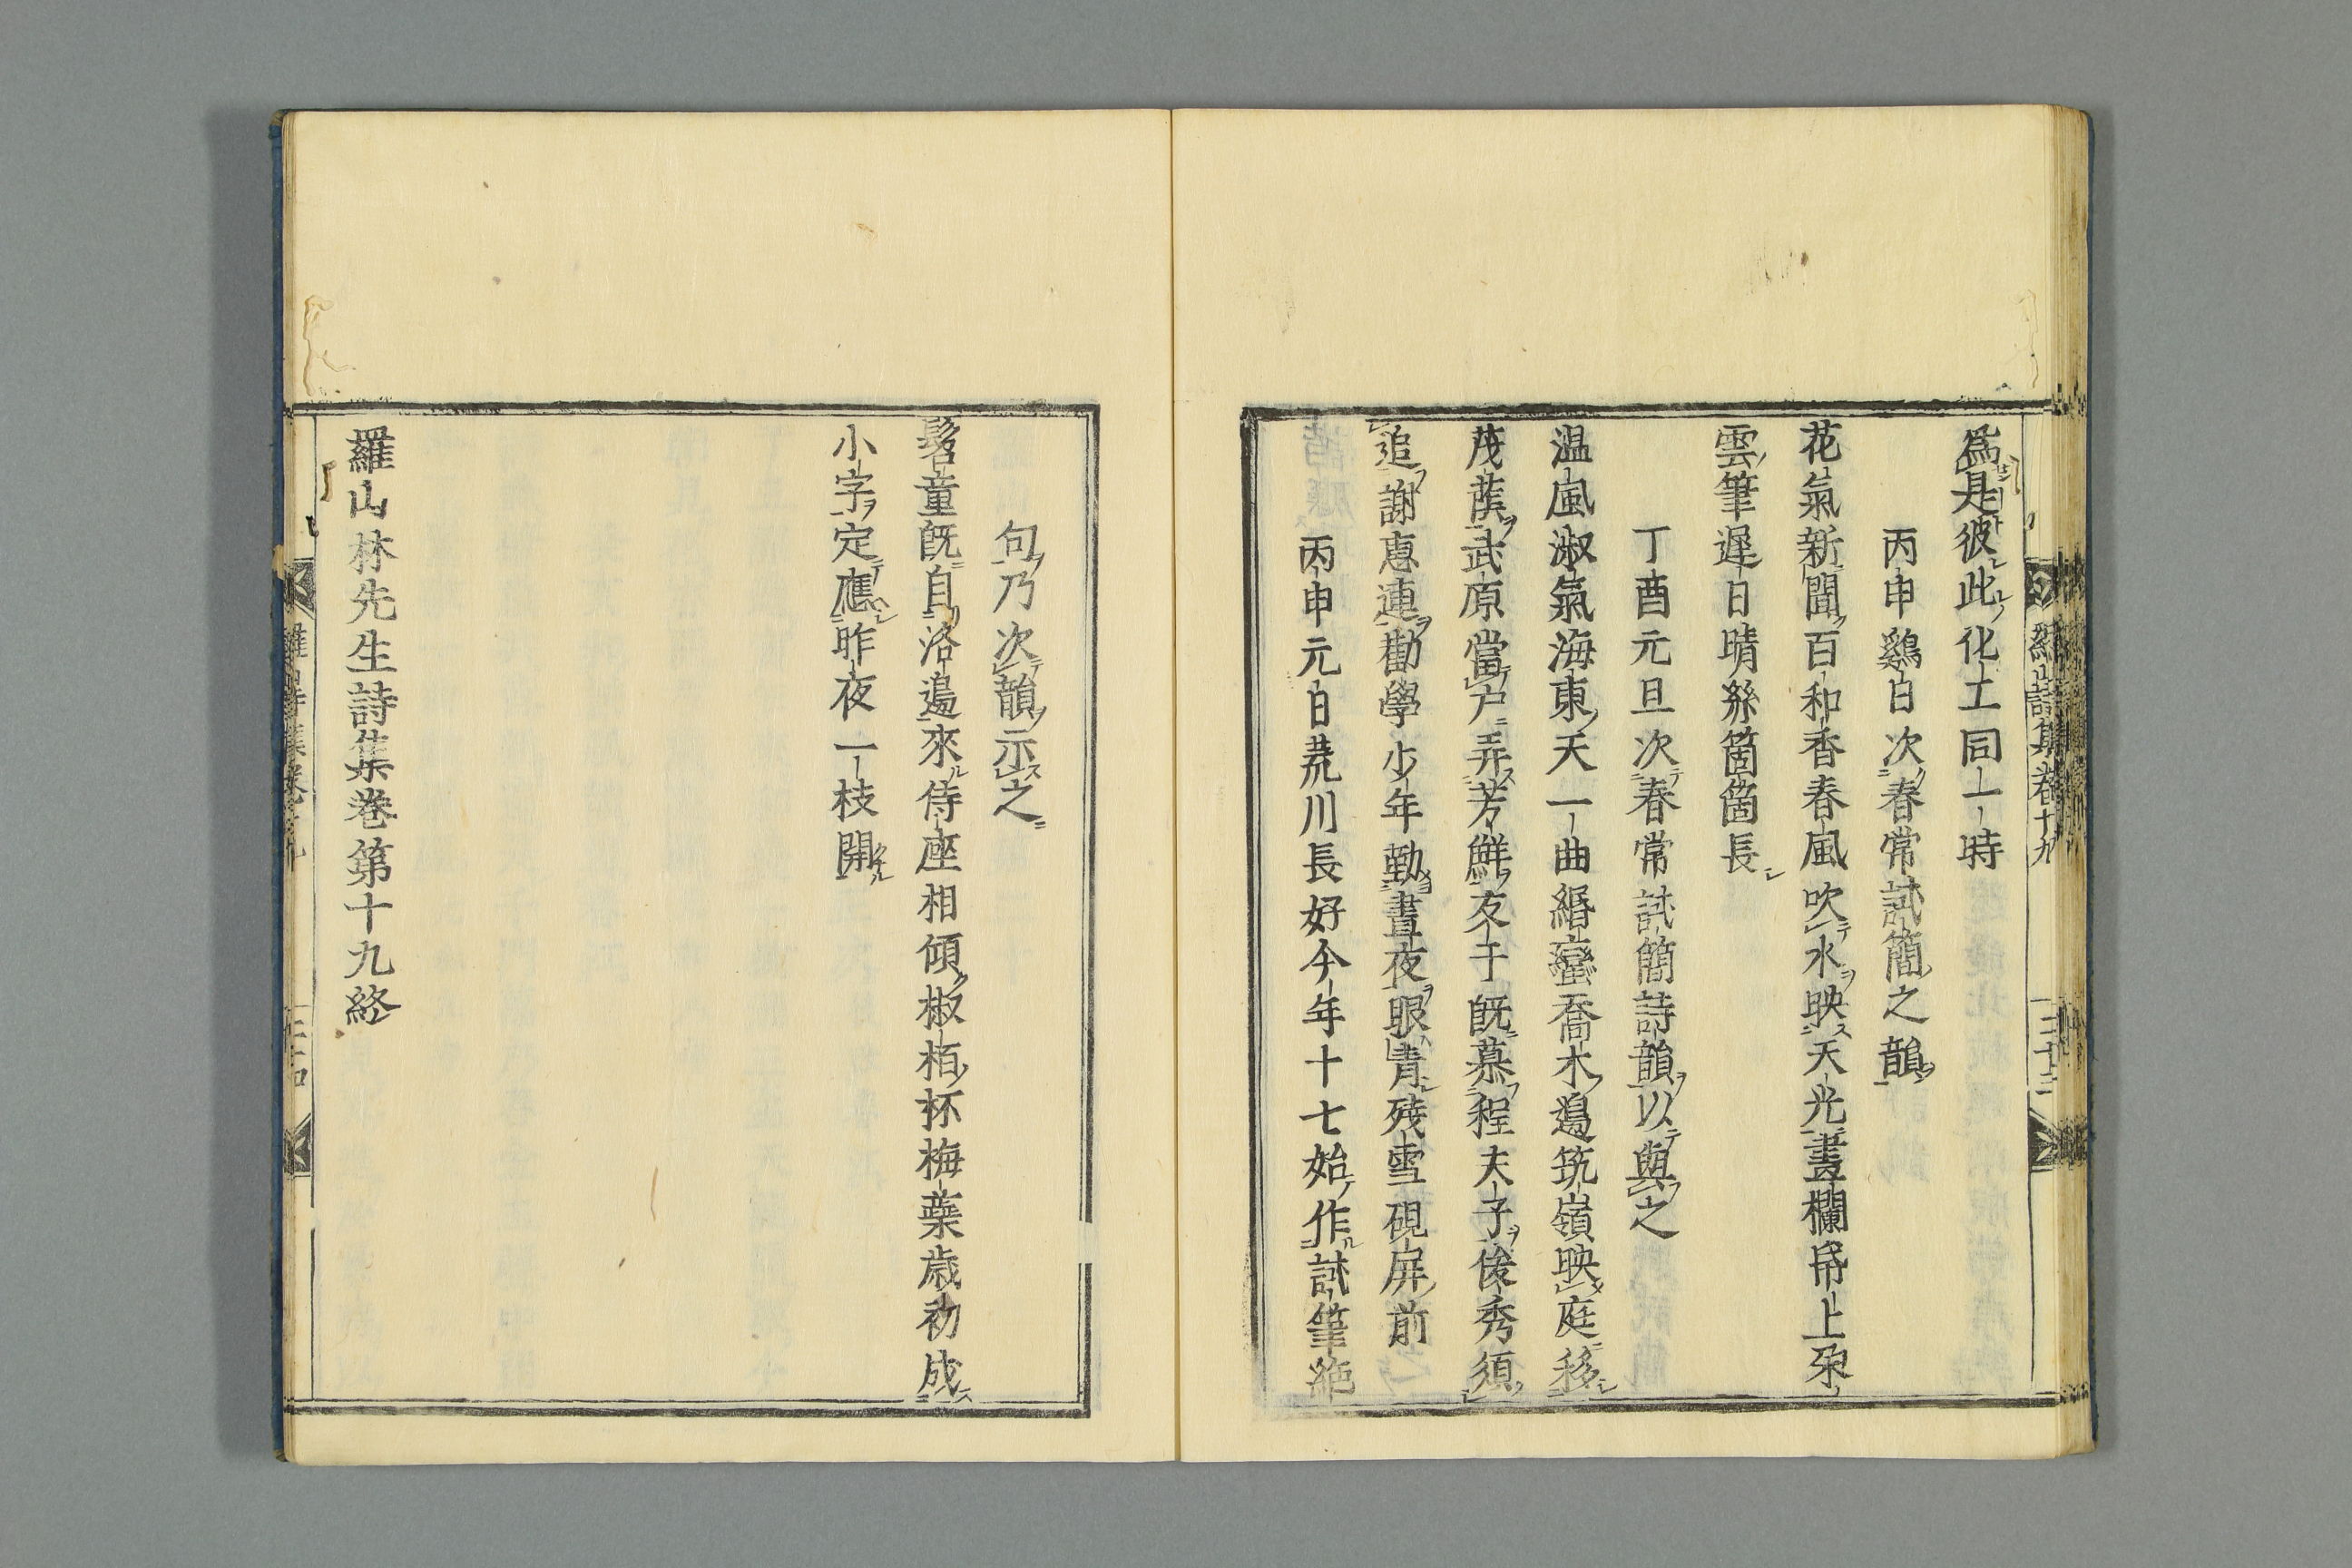 羅山詩集卷十九
爲是彼此化工同一時
丙申鷄日次春常試簡之韻
花氣新聞百和香春風吹水映天光晝欄帋上朶
雲筆遲日晴絲箇箇長
丁酉元旦次春常試簡詩韻以與之
温風淑氣海東天一曲緡蠻喬木邉筑嶺映庭移
茂蔭武原當户弄芳鮮友于既慕程夫子俊秀須
追謝惠連勸學少年勤晝夜眼青殘雪硯屏前
丙申元日荒川長好今年十七始作試筆絶
句乃次韻示之
髫童既自洛邉來侍座相傾椒栢杯梅蘂歳初成
小字定應昨夜一枝開
羅山林先生詩集卷第十九終